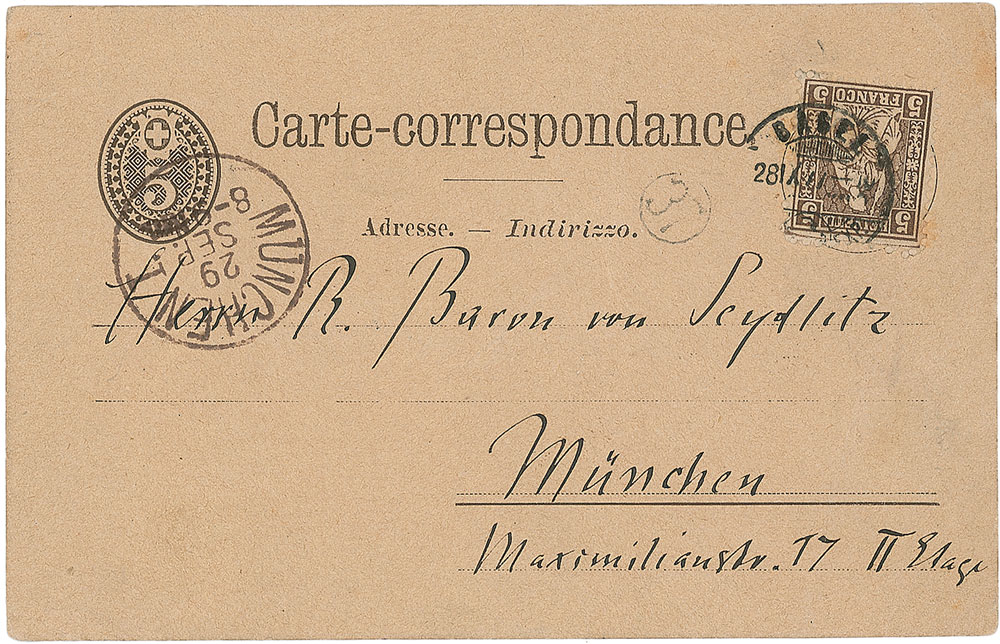 Carte-correspondance.
Adresse. — Indirizzo.
5
5 FRANCO 5
5 5
BASEL
28 IX
3
MÜNCHEN I.
29
SEP.
8-
Herrn R. Baron von Seydlitz
München
Maximilianstr. 17 II Etage